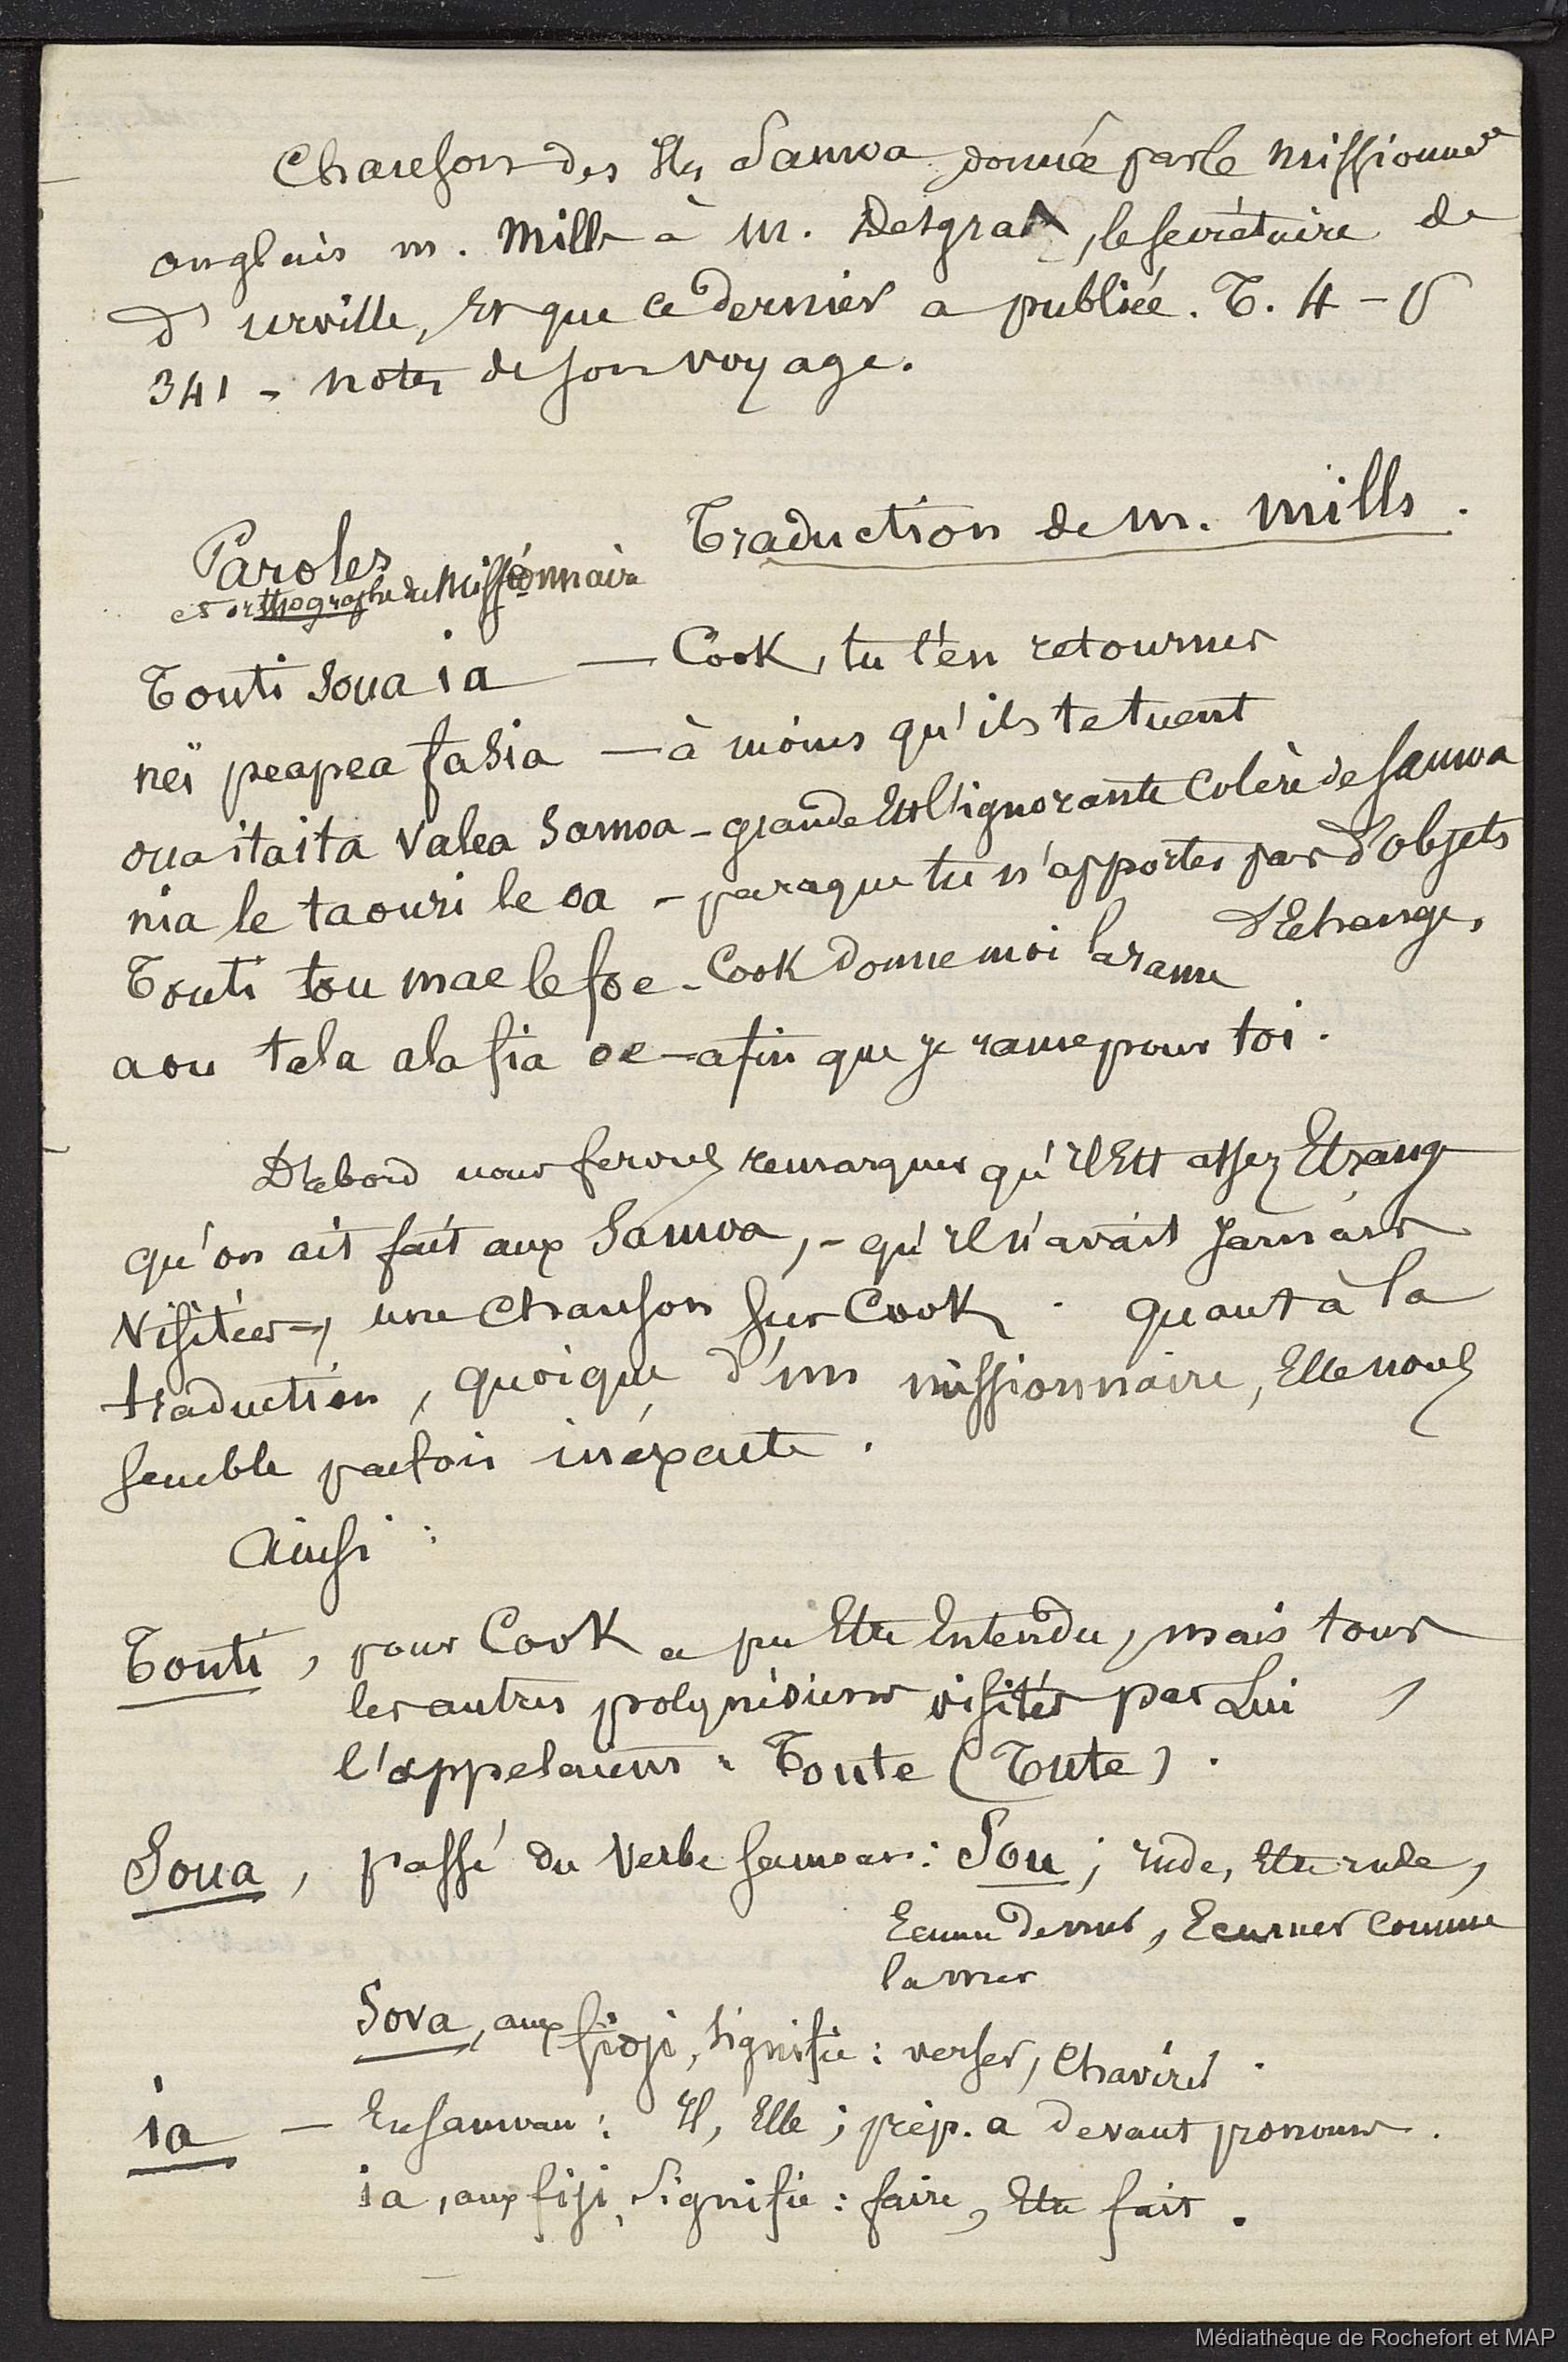 Chanson des Iles Samoa donnée par le missionnre
anglais m. Mills à M. Desgraz, le secrétaire de
d'urville, et que ce dernier a publiée. T. 4 - p
341 - notes de son voyage.
Traduction de m. mills.
Paroles
et orthographe du Missionnaire
Touti soua ia — Cook, tu t'en retournes
neï peapea fasia — à moins qu'ils te tuent
oua itaita valea Samoa - grande est l'ignorante colère de Samoa
nia le taouri le oa - parceque tu n'apportes pas d'objets
d'Echange,
Touti tou mae le foe - Cook donne moi la rame
aou tala alafia oe - afin que je rame pour toi.
D'abord nous ferons remarquer qu'il Est assez Etrange
qu'on ait fait aux Samoa, - qu'il n'avait Jamais
visitées -, une chanson sur Cook. quant à la
traduction, quoique d'un missionnaire, Elle nous
semble parfois inéxacte.
Ainsi :
Touti, pour Cook a pu Etre Entendu, mais tous
les autres polynésiens visités par Lui,
l'appelaient : Toute (Tute).
Soua, passé du verbe samoan : Sou ; rude, Etre rude,
Ecumer comme
la mer
Sova, aux fidji, signifie : verser, Chavirer.
ia — En samoan : Il, Elle ; prép. a devant pronoms.
ia, aux fiji, signifie : faire, Etre fait.
Médiathèque de Rochefort et MAP